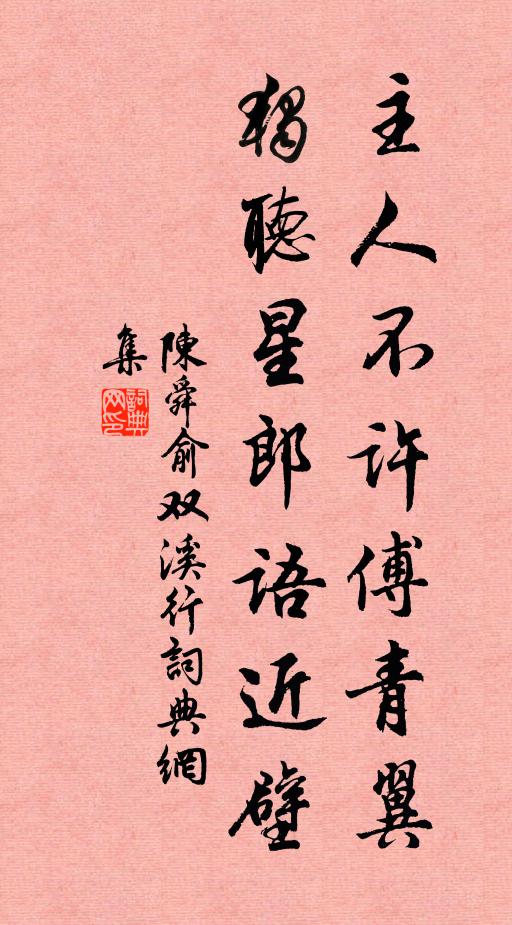 主人不許傅青翼
獨聽星郎語近壁
陳舜俞双溪行詞典網
集
詞典網印